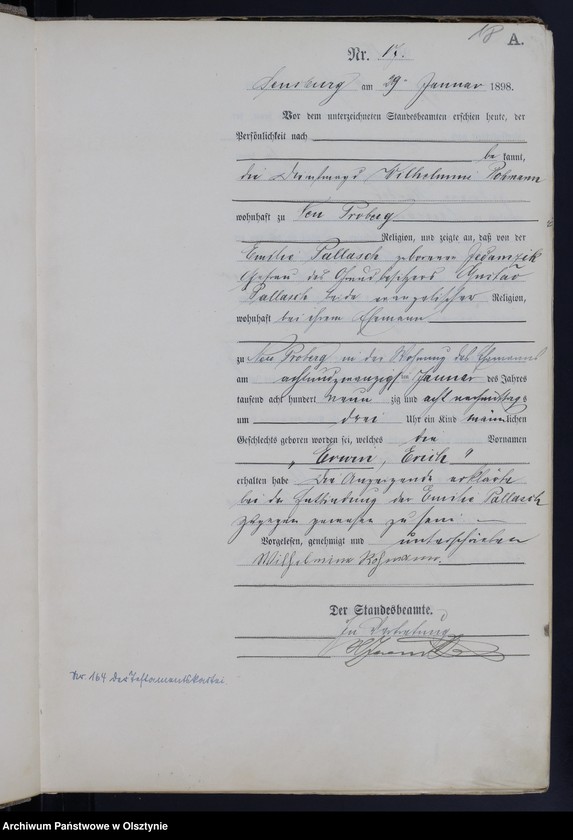 18 A.
Nr. 17.
Sensburg am 29ten Januar 1898.
Vor dem unterzeichneten Standesbeamten erschien heute, der
Persönlichkeit nach
be kannt,
die Dienstmagd Wilhelmine
wohnhaft zu Neu Proberg
Religion, und zeigte an, daß von der
Emilie Pallasch geborenen
Ehefrau des Grundbesitzers Gustav
Pallasch beide evangelischer Religion,
wohnhaft bei ihrem Ehemann
zu Neu Proberg in der Wohnung des Ehemannes
am achtundzwanzigsten Januar des Jahres
tausend acht hundert neun zig und acht nachmittags
um drei Uhr ein Kind männlichen
Geschlechts geboren worden sei, welches die Vornamen
„Erwin, Erich"
erhalten habe. Die Anzeigende erklärte
bei der Entbindung der Emilie Pallasch
zugegen gewesen zu sein.
Vorgelesen, genehmigt und unterschrieben
Wilhelmine
Der Standesbeamte.
In Vertretung
Nr. 164 der Testamentskartei
Archiwum Państwowe w Olsztynie